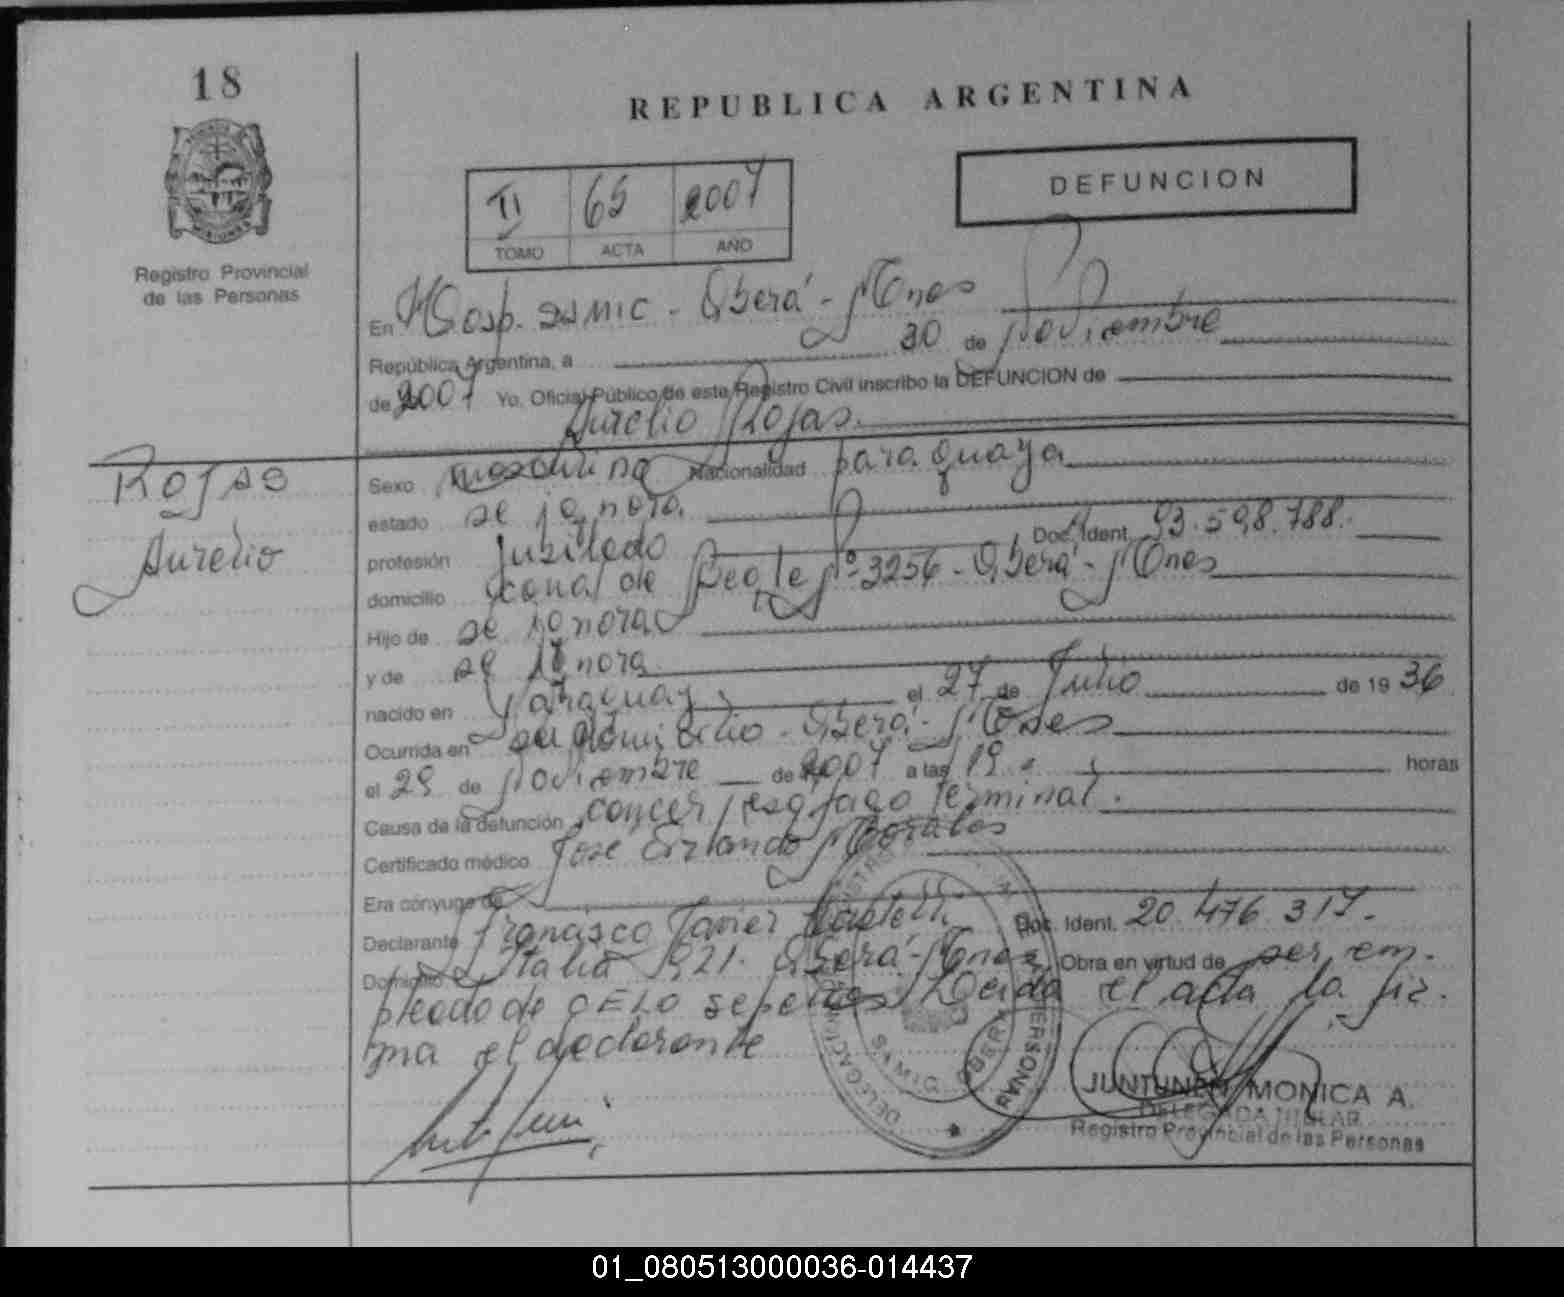 18
REPUBLICA ARGENTINA
DEFUNCION
II 65 2007
TOMO ACTA AÑO
Registro Provincial
de las Personas
En Hosp. SAMIC - Oberá - Mnes
República Argentina, a 30 de Noviembre
de 2007 Yo, Oficial Público de este Registro Civil inscribo la DEFUNCION de
Aurelio Rojas.
Rojas
Aurelio
Sexo masculino Nacionalidad paraguaya
estado se ignora
profesión Jubilado Doc. Ident. 93.598.788.
domicilio de Nº 3256 - Oberá - Mnes
Hijo de se ignora
y de se ignora
nacido en Paraguay el 27 de Julio de 1936
Ocurrida en su domicilio - Oberá - Mnes
el 28 de Noviembre de 2007 a las 19. horas
Causa de la defunción cancer esofago terminal.
Certificado médico Jose Morales
Era cónyuge de
Declarante Francisco Javier Doc. Ident. 20.476.317.
Domicilio Italia 521. Oberá - Mnes Obra en virtud de ser em-
pleado de CELO sepelios Leida el acta la fir-
ma el declarante
DELEGACION SAMIC OBERA PERSONAS
JUNTUNEN MONICA A.
DELEGADA TITULAR
Registro Provincial de las Personas
01_080513000036-014437